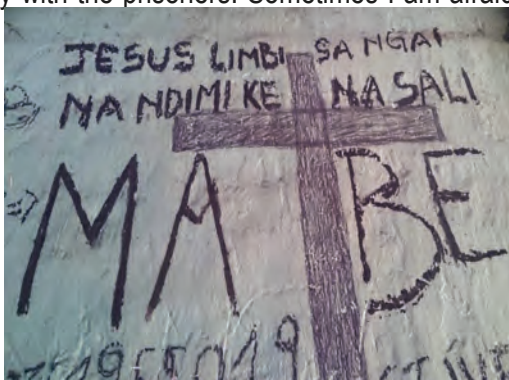 y with the prisoners. Sometimes I am afraid
JESUS LIMBI SA NGAI
NA NDIMI KE NA SALI
MABE